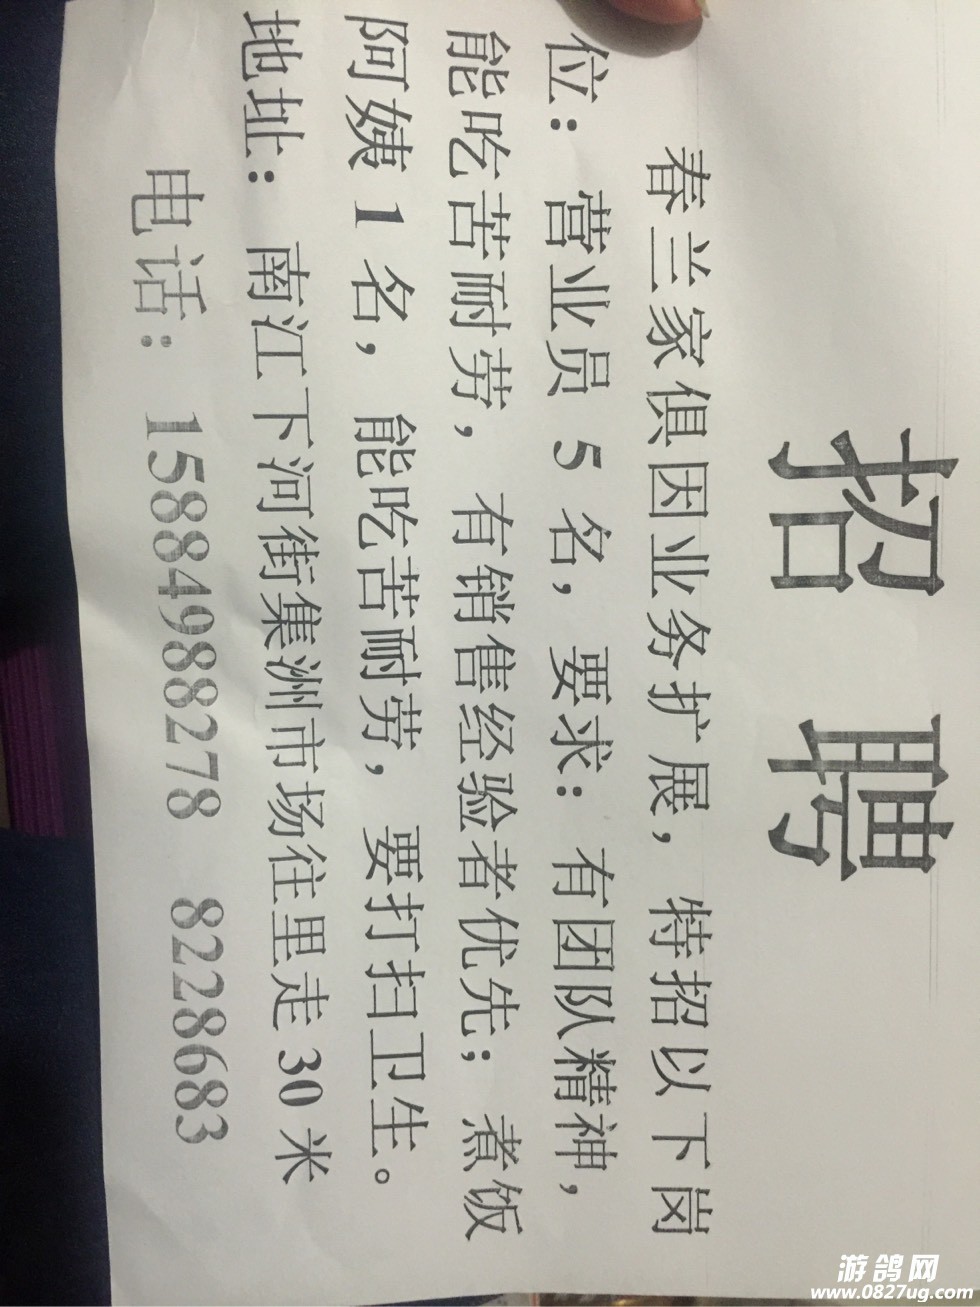 招聘
春兰家俱因业务扩展，特招以下岗
位：营业员 5 名，要求：有团队精神，
能吃苦耐劳，有销售经验者优先；煮饭
阿姨 1 名，能吃苦耐劳，要打扫卫生。
地址：南江下河街集洲市场往里走 30 米
电话：15884988278 8228683
游鸽网
www.0827ug.com